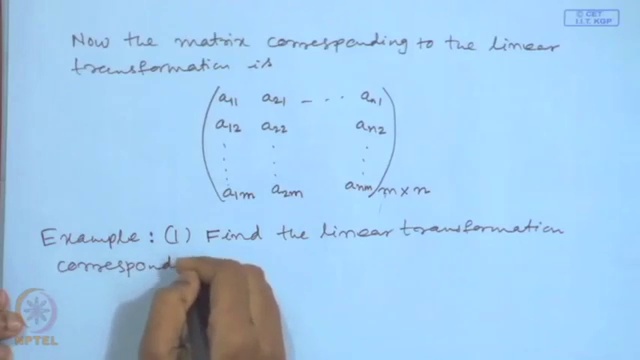 © CET
I.I.T. KGP
Now the matrix corresponding to the linear
transformation is
a11 a21 - ... an1
a12 a22 an2
⋮ ⋮ ⋮
a1m a2m anm m×n
Example: (1) Find the linear transformation
correspond
NPTEL